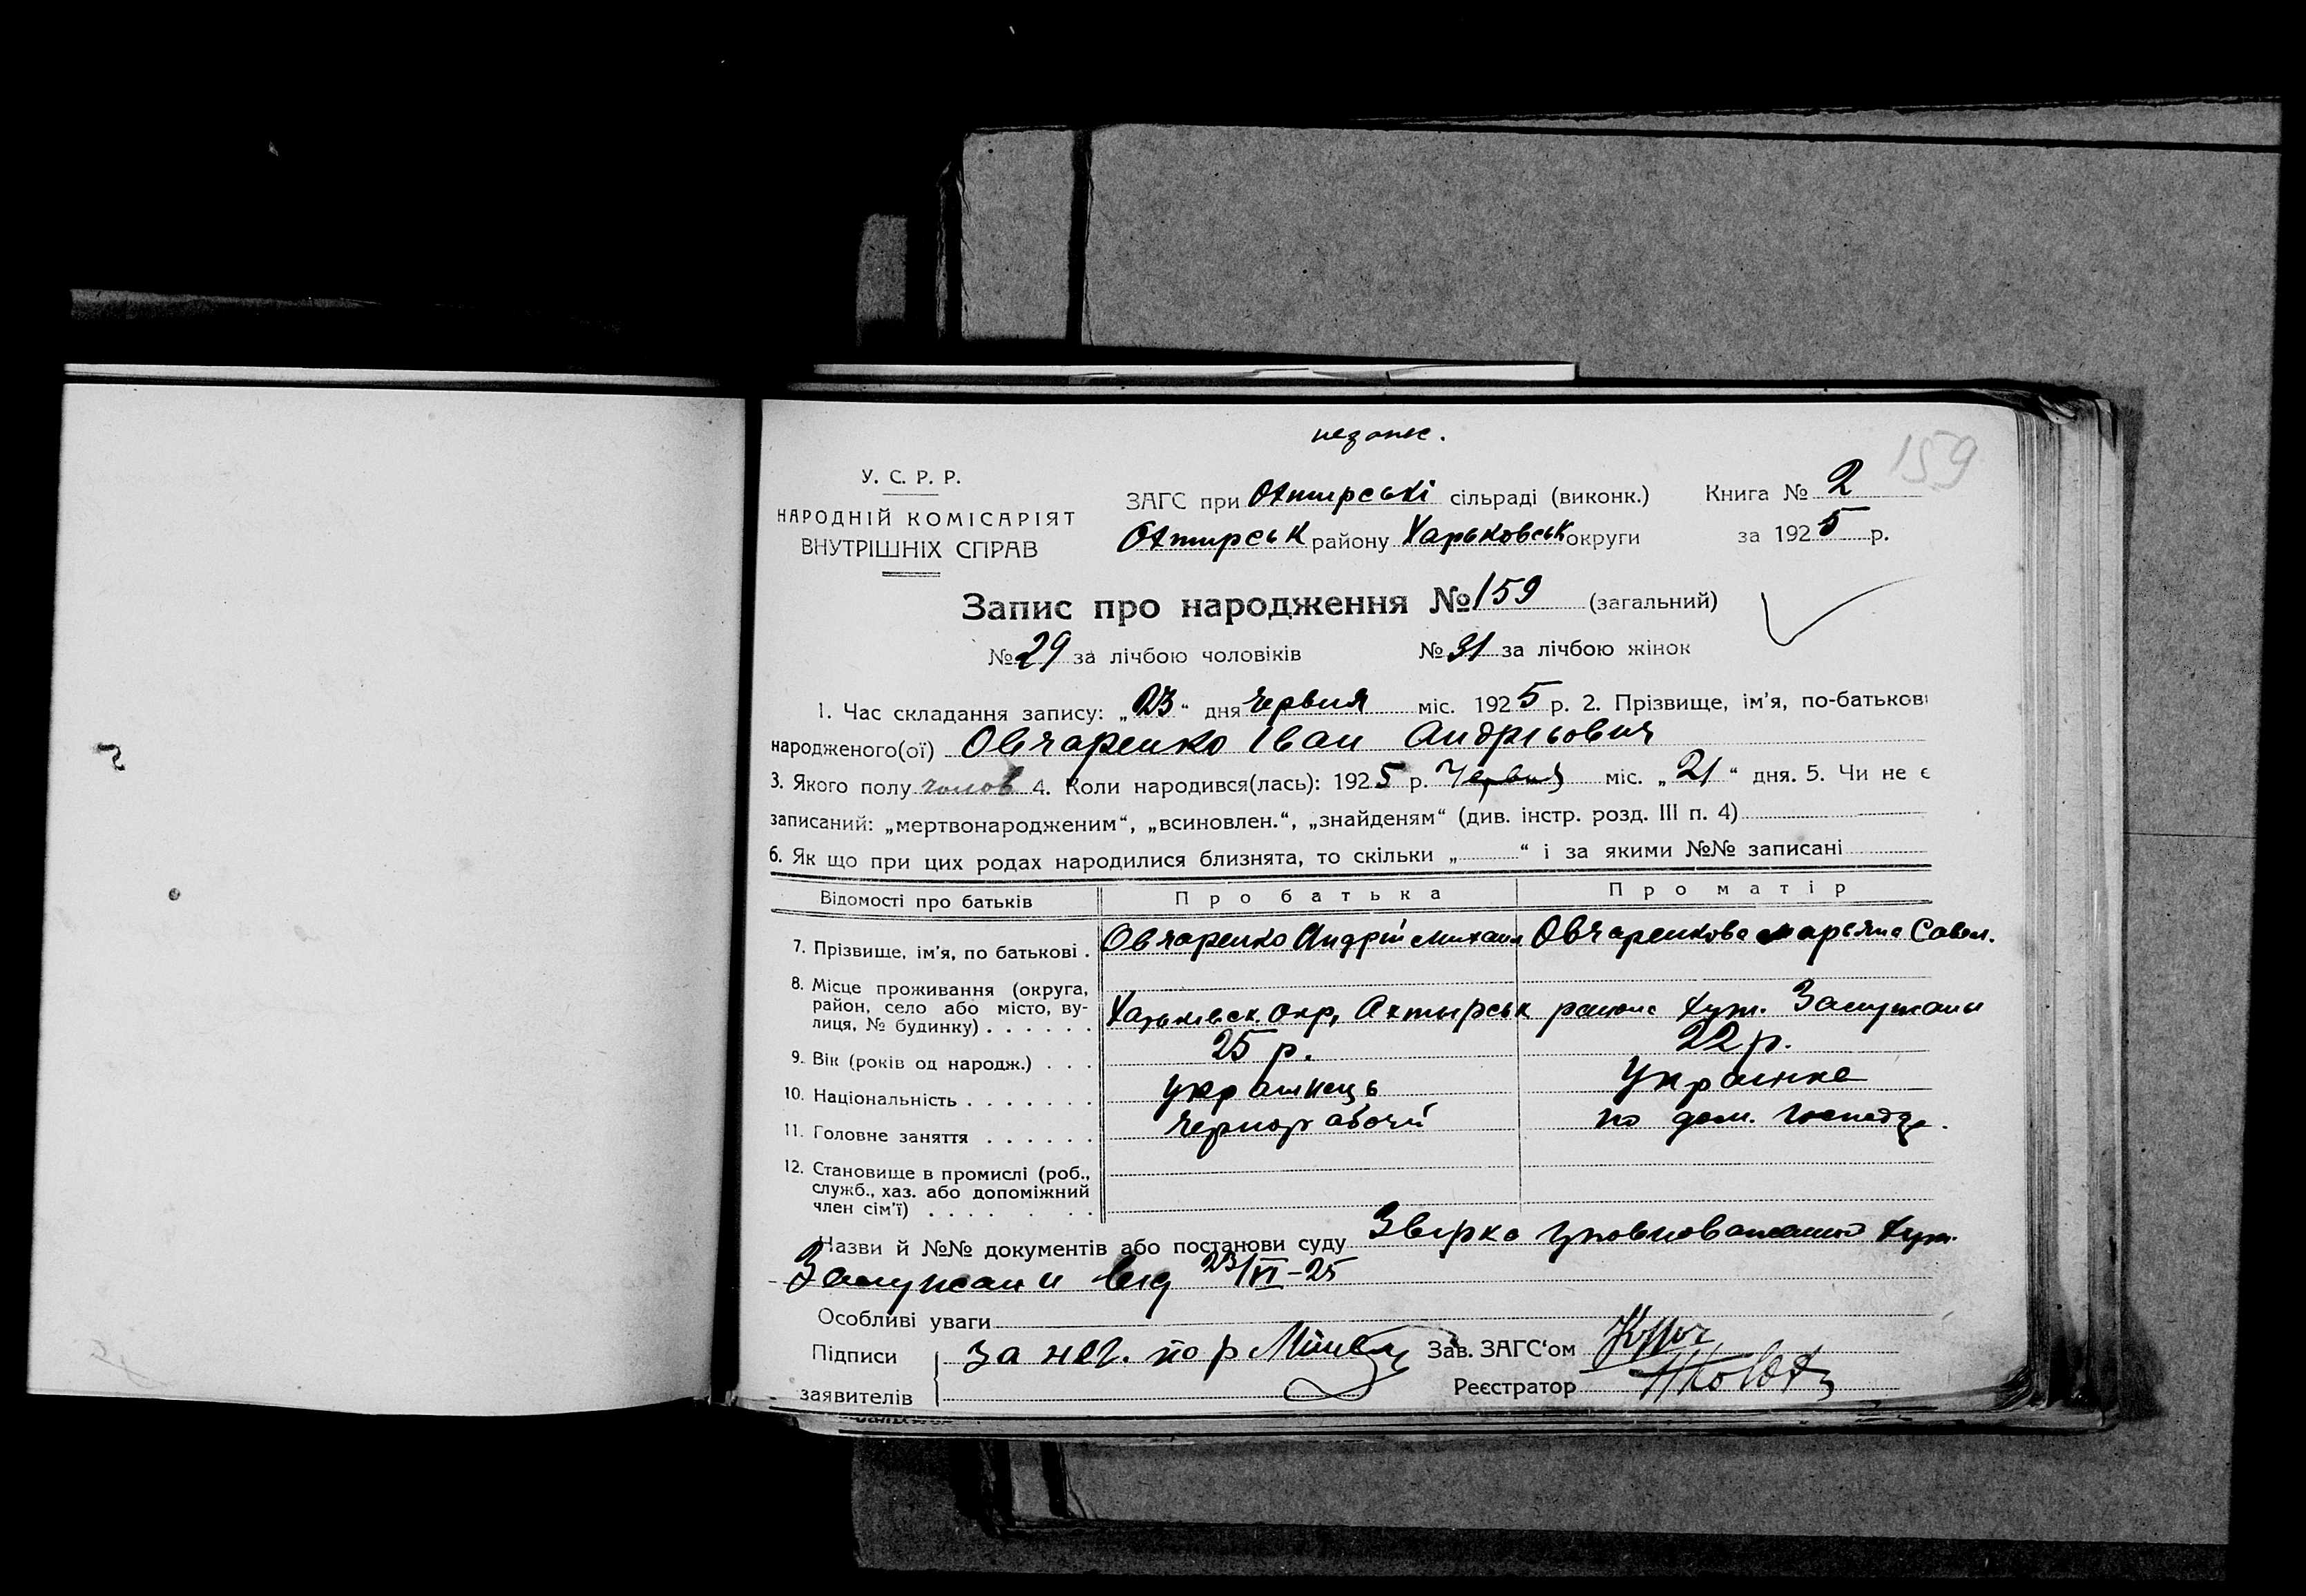 159
У. С. Р. Р.
НАРОДНІЙ КОМІСАРІЯТ
ВНУТРІШНІХ СПРАВ
ЗАГС при Охтирські сільраді (виконк.)
Охтирськ району Харьковськ округи
Книга № 2
за 1925 р.
Запис про народження № 159 (загальний)
№ 29 за лічбою чоловіків № 31 за лічбою жінок
1. Час складання запису: „23“ дня червня міс. 1925 р. 2. Прізвище, ім’я, по-батькові
народженого(ої) Овчаренко Іван Андрієвич
3. Якого полу чолов 4. Коли народився(лась): 1925 р. Червня міс. „21“ дня. 5. Чи не є
записаний: „мертвонародженим“, „всиновлен.“, „знайденям“ (див. інстр. розд. III п. 4)
6. Як що при цих родах народилися близнята, то скільки „ “ і за якими №№ записані
Відомості про батьків Про батька Про матір
7. Прізвище, ім’я, по батькові . Овчаренко Андрій Михаил Овчаренкова Марьяна Савел.
8. Місце проживання (округа,
район, село або місто, ву-
лиця, № будинку) . . . . . . Харьківск. окр, Ахтырськ района хут. Залужани
9. Вік (років од народж.) . . . 25 р. 22 р.
10. Національність . . . . . . . украинець Украинка
11. Головне заняття . . . . . . чернорабочій по дом. господ.
12. Становище в промислі (роб.,
служб., хаз. або допоміжний
член сім’ї) . . . . . . .
Назви й №№ документів або постанови суду Звірка уповноваженной хут.
Залужани від 23/VI-25
Особливі уваги
Підписи за нег. по р
заявителів
Зав. ЗАГС‘ом
Реєстратор